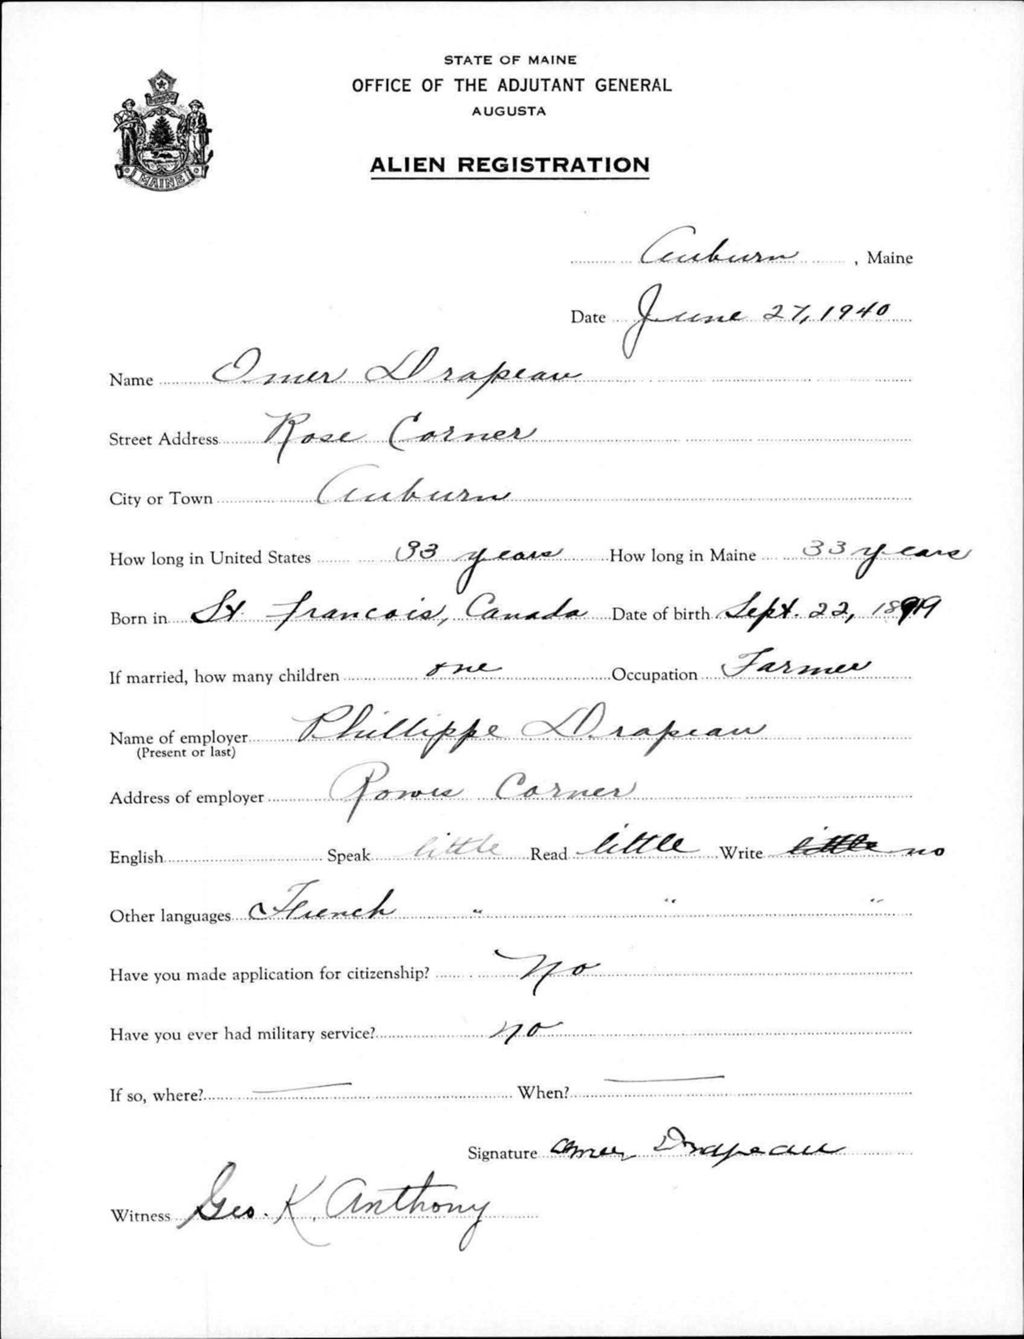 STATE OF MAINE
OFFICE OF THE ADJUTANT GENERAL
AUGUSTA
ALIEN REGISTRATION
MAINE
Auburn, Maine
Date June 27, 1940
Name Omer Drapeau
Street Address Rose Corner
City or Town Auburn
How long in United States 33 years How long in Maine 33 years
Born in St. Francois, Canada Date of birth Sept. 22,
If married, how many children one Occupation Farmer
Name of employer Phillippe Drapeau
(Present or last)
Address of employer Rowes Corner
English Speak little Read little Write little no
Other languages French " " "
Have you made application for citizenship? No
Have you ever had military service? no
If so, where? — When? —
Signature Omer Drapeau
Witness Geo. K. Anthony